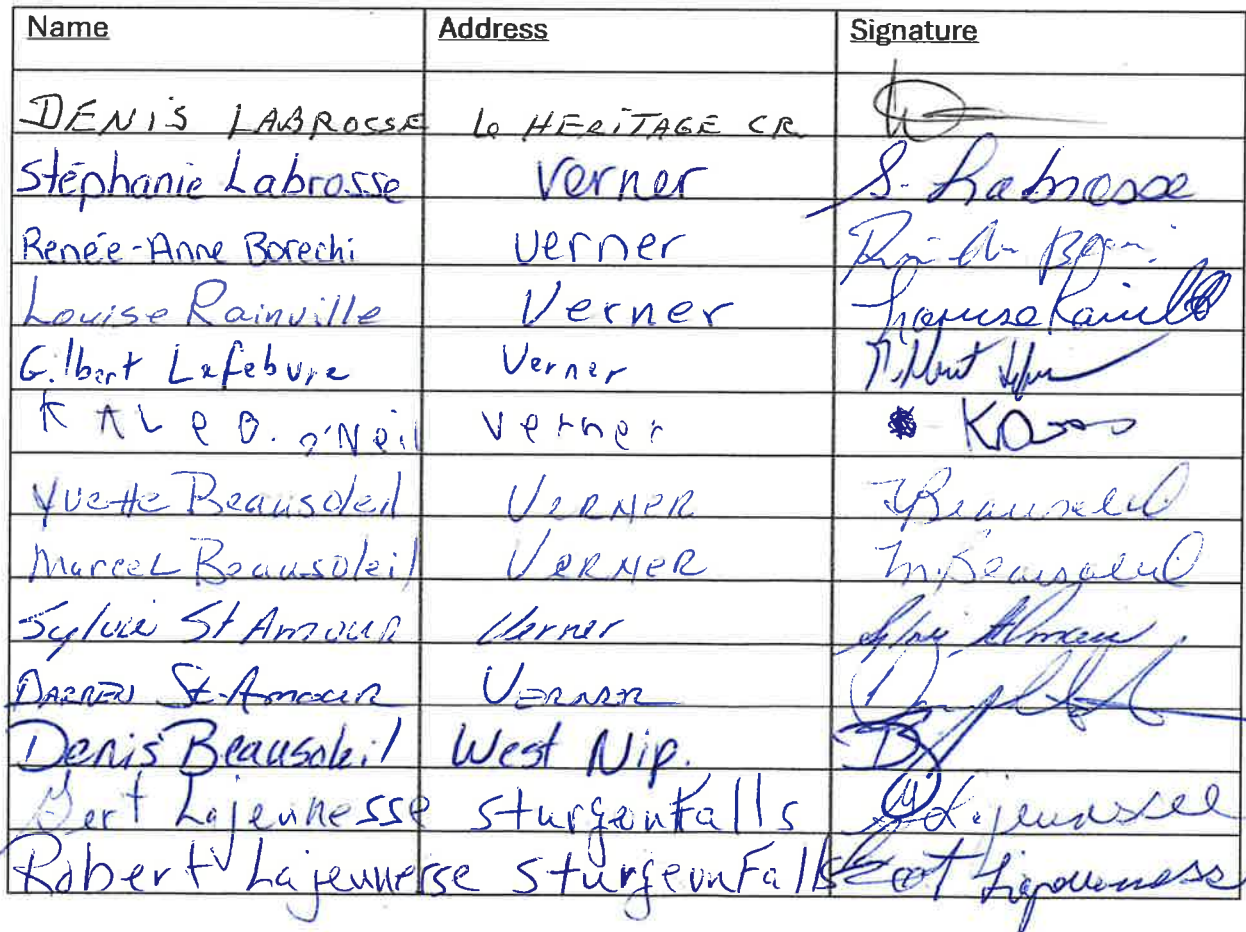 Name Address Signature
DENIS LABROSSE 6 HERITAGE CR
Stéphanie Labrosse Verner S. Labrosse
Renée-Anne Borechi Verner
Louise Rainville Verner Louise Rainville
Gilbert Lefebvre Verner Gilbert
O'Neil Verner
Yvette Beausoleil VERNER Y Beausoleil
Marcel Beausoleil VERNER M. Beausoleil
Sylvie St Amour Verner Sylvie
DARREN St-Amour VERNER
Denis Beausoleil West Nip. DB
Gert Lajeunesse Sturgeon Falls G Lajeunesse
Robert Lajeunesse Sturgeon Falls